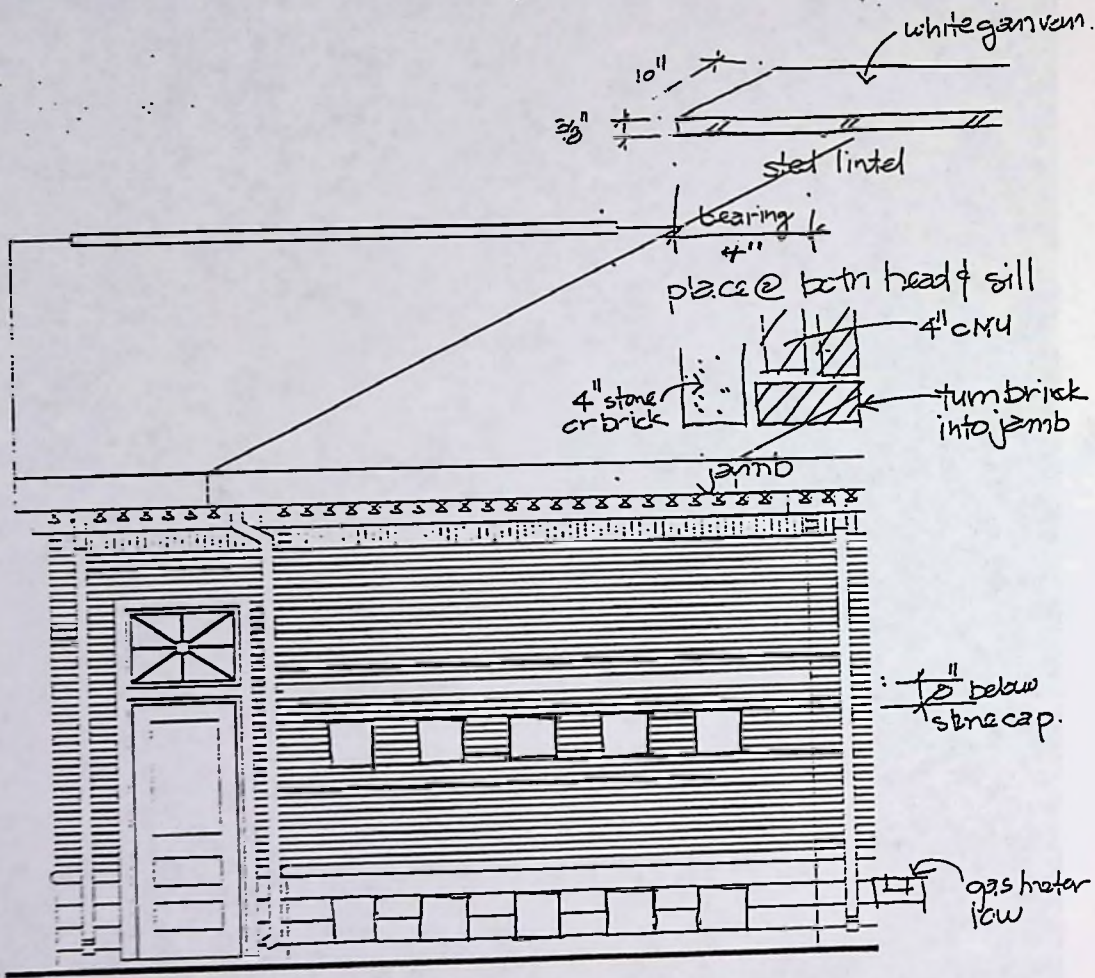 white
10"
3/8"
steel lintel
bearing
4"
place @ both head & sill
4" CMU
4" stone
or brick
turn brick
into jamb
jamb
" below
stone cap.
gas meter